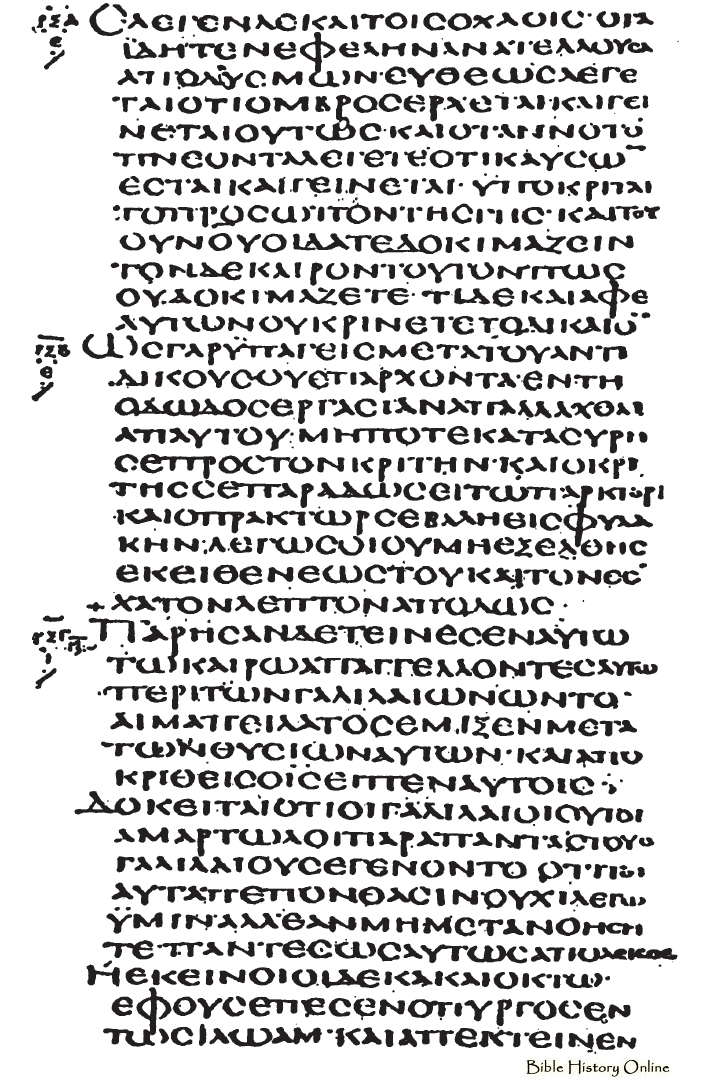 ΡΞΑ ΕΛΕΓΕΝΔΕΚΑΙΤΟΙϹΟΧΛΟΙϹ·ΟΤΑ
Ε ΪΔΗΤΕΝΕΦΕΛΗΝΑΝΑΤΕΛΛΟΥϹΑ
ΑΠΟΔΥϹΜΩΝ·ΕΥΘΕΩϹΛΕΓΕ
ΤΑΙΟΤΙΟΜΒΡΟϹΕΡΧΕΤΑΙ·ΚΑΙΓΕΙ
ΝΕΤΑΙΟΥΤΩϹ·ΚΑΙΟΤΑΝΝΟΤΟ
ΠΝΕΟΝΤΑΛΕΓΕΤΕΟΤΙΚΑΥϹΩ
ΕϹΤΑΙΚΑΙΓΕΙΝΕΤΑΙ·ΥΠΟΚΡΙΤΑΙ
ΤΟΠΡΟϹΩΠΟΝΤΗϹΓΗϹ·ΚΑΙΤΟΥ
ΟΥΝΟΥΟΙΔΑΤΕΔΟΚΙΜΑΖΕΙΝ
ΤΟΝΔΕΚΑΙΡΟΝΤΟΥΤΟΝΠΩϹ
ΟΥΔΟΚΙΜΑΖΕΤΕ·ΤΙΔΕΚΑΙΑΦΕ
ΑΥΤΩΝΟΥΚΡΙΝΕΤΕΤΟΔΙΚΑΙΟ
ΡΞΒ ΩϹΓΑΡΫΠΑΓΕΙϹΜΕΤΑΤΟΥΑΝΤΙ
Ε ΔΙΚΟΥϹΟΥΕΠΑΡΧΟΝΤΑ·ΕΝΤΗ
ΟΔΩΔΟϹΕΡΓΑϹΙΑΝΑΠΑΛΛΑΧΘΑΙ
ΑΠΑΥΤΟΥ·ΜΗΠΟΤΕΚΑΤΑϹΥΡΗ
ϹΕΠΡΟϹΤΟΝΚΡΙΤΗΝ·ΚΑΙΟΚΡΙ
ΤΗϹϹΕΠΑΡΑΔΩϹΕΙΤΩΠΡΑΚΤΟΡΙ
ΚΑΙΟΠΡΑΚΤΩΡϹΕΒΑΛΗΕΙϹΦΥΛΑ
ΚΗΝ·ΛΕΓΩϹΟΙΟΥΜΗΕΞΕΛΘΗϹ
ΕΚΕΙΘΕΝΕΩϹΤΟΥΚΑΙΤΟΝΕϹ
ΧΑΤΟΝΛΕΠΤΟΝΑΠΟΔΩϹ·
ΡΞΓ ΠΑΡΗϹΑΝΔΕΤΕΙΝΕϹΕΝΑΥΤΩ
Ι ΤΩΚΑΙΡΩΑΠΑΓΓΕΛΛΟΝΤΕϹΑΥΤΩ
ΠΕΡΙΤΩΝΓΑΛΙΛΑΙΩΝΩΝΤΟ
ΑΙΜΑΠΕΙΛΑΤΟϹΕΜΙΞΕΝΜΕΤΑ
ΤΩΝΘΥϹΙΩΝΑΥΤΩΝ·ΚΑΙΑΠΟ
ΚΡΙΘΕΙϹΟΙϹΕΙΠΕΝΑΥΤΟΙϹ·
ΔΟΚΕΙΤΑΙΟΤΙΟΙΓΑΛΙΛΑΙΟΙΟΥΤΟΙ
ΑΜΑΡΤΩΛΟΙΠΑΡΑΠΑΝΤΑϹΤΟΥϹ
ΓΑΛΙΛΑΙΟΥϹΕΓΕΝΟΝΤΟΟΤΙΤΟΙ
ΑΥΤΑΠΕΠΟΝΘΑϹΙΝΟΥΧΙΛΕΓΩ
ΫΜΙΝ·ΑΛΛΕΑΝΜΗΜΕΤΑΝΟΗϹΗ
ΤΕΠΑΝΤΕϹΩϹΑΥΤΩϹΑΠΟΛΕΙϹΘΕ
ΗΕΚΕΙΝΟΙΟΙΔΕΚΑΚΑΙΟΚΤΩ·
ΕΦΟΥϹΕΠΕϹΕΝΟΠΥΡΓΟϹΕΝ
ΤΩϹΙΛΩΑΜ·ΚΑΙΑΠΕΚΤΕΙΝΕΝ
Bible History Online